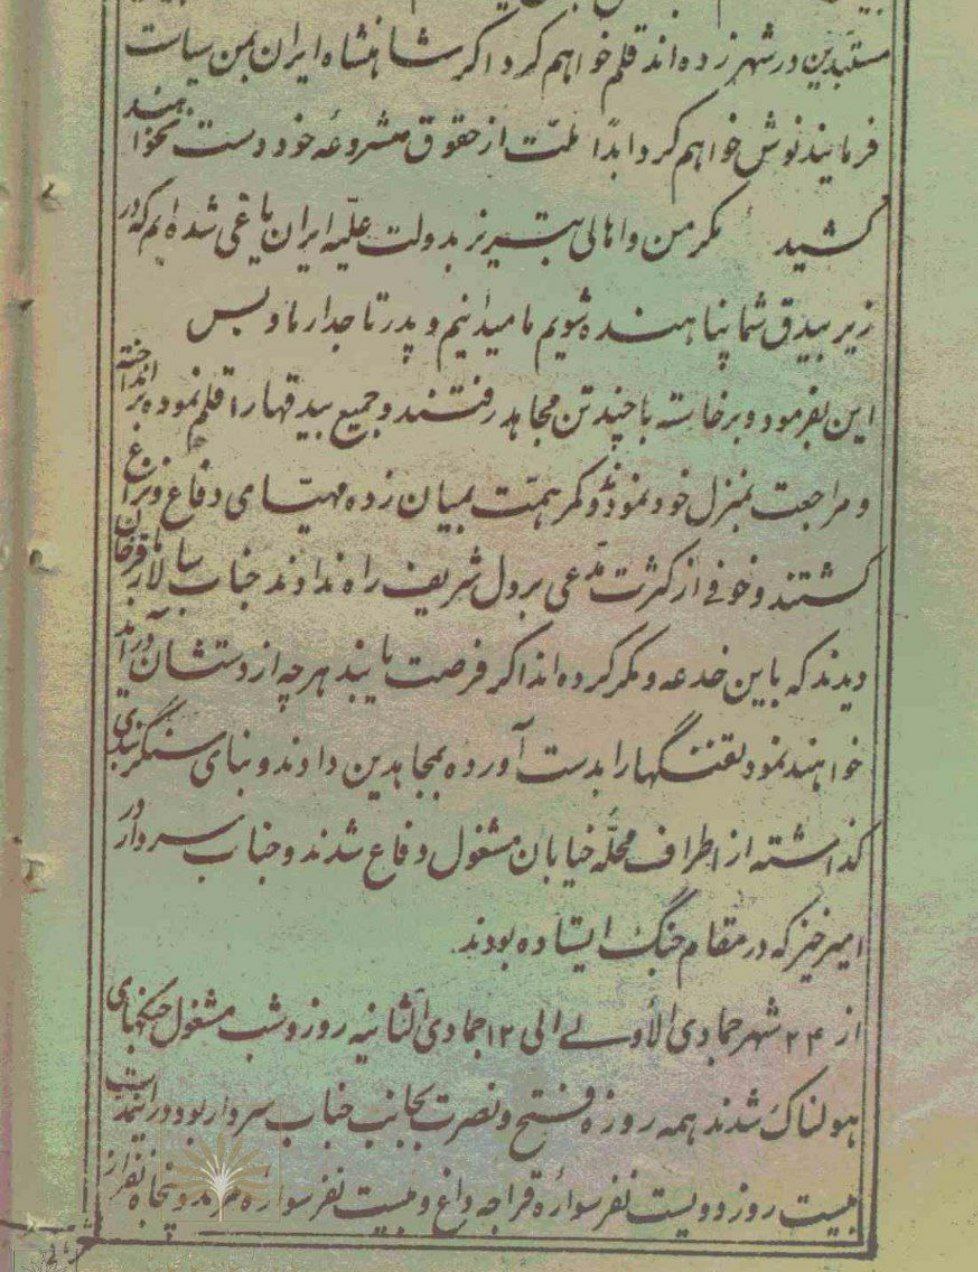 مستبدین در شهر زده اند قلم خواهم کرد اگر شاهنشاه ایران بمن سیاست
فرمایند نوش خواهم کرد ابداً ملّت از حقوق مشروعه خود دست نخواهند
کشید مگر من و اهالی تبریز بدولت علیّه ایران یاغی شده ایم که در
زیر بیدق شما پناهنده شویم ما میدانیم و پدر تاجدار ما و بس
این بفرمود و برخاسته با چند تن مجاهد رفتند و جمیع بیدقها را قلم نموده برانداخته
و مراجعت بمنزل خود نمود و کمر همّت بمیان زده مهیّای دفاع و نزاع
گشتند و خوفی از کثرت مدّعی بر دل شریف راه ندادند جناب سالار باقرخان
دیدند که باین خدعه و مکر کرده اند اگر فرصت یابند هر چه از دستشان برآید
خواهند نمود تفنگها را بدست آورده بمجاهدین دادند و بنای سنگربندی
گذاشته از اطراف محلّه خیابان مشغول دفاع شدند و جناب سردار در
امیرخیز که در مقام جنگ ایستاده بودند
از ۲۴ شهر جمادی الأولی الی ۱۲ جمادی الثانیه روز و شب مشغول جنگهای
هولناک شدند همه روزه فتح و نصرت بجانب جناب سردار بود در این
بیست روز دویست نفر سواره قراجه داغ و بیست نفر سواره مرند و پنجاه نفر از